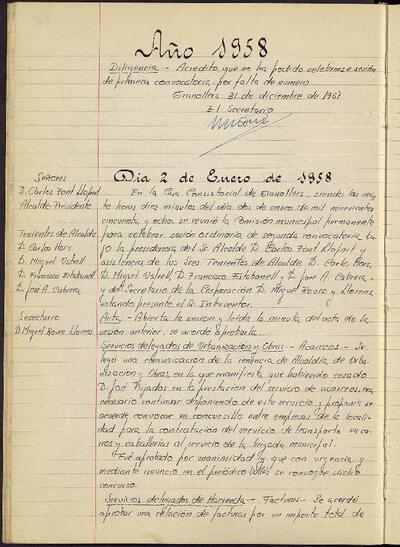 Año 1958
Diligencia - Acredito que no ha podido celebrarse sesión
de primera convocatoria, por falta de número.
Granollers 31 de diciembre de 1957
El Secretario
Día 2 de Enero de 1958
Señores
D. Carlos Font Llopart
Alcalde-Presidente
Tenientes de Alcalde
D. Carlos Hors
D. Miguel Ustrell
D. Francisco Estabanell
D. José A. Cabrera
Secretario
D. Miguel Rovira Llorens
En la Casa Consistorial de Granollers, siendo las vein-
te horas diez minutos del día dos de enero de mil novecientos
cincuenta y ocho, se reunió la Comisión municipal permanente
para celebrar sesión ordinaria de segunda convocatoria, ba-
jo la presidencia del Sr. Alcalde D. Carlos Font Llopart,
asistencia de los Sres. Tenientes de Alcalde D. Carlos Hors,
D. Miguel Ustrell, D. Francisco Estabanell y D. José A. Cabrera,
y del Secretario de la Corporación D. Miguel y Llorens,
estando presente el Sr. Interventor.
Acta - Abierta la sesión y leída la minuta del acta de la
sesión anterior, se acordó aprobarla.
Servicios delegados de Urbanización y Obras - Acarreos - Se
leyó una comunicación de la tenencia de Alcaldía de Urba-
nización y Obras, en la que manifiesta que habiendo cesado
D. José Pujadas en la prestación del servicio de acarreos, era
necesario continuar disponiendo de este servicio y proponía se
acuerde convocar un concursillo entre empresas de la locali-
dad para la contratación del servicio de transporte en ca-
rros y caballerías al servicio de la brigada municipal.
Fué aprobado por unanimidad y que con urgencia y
mediante anuncio en el periódico se convoque dicho
concurso.
Servicios delegados de Hacienda - Facturas - Se acordó
aprobar una relación de facturas por un importe total de